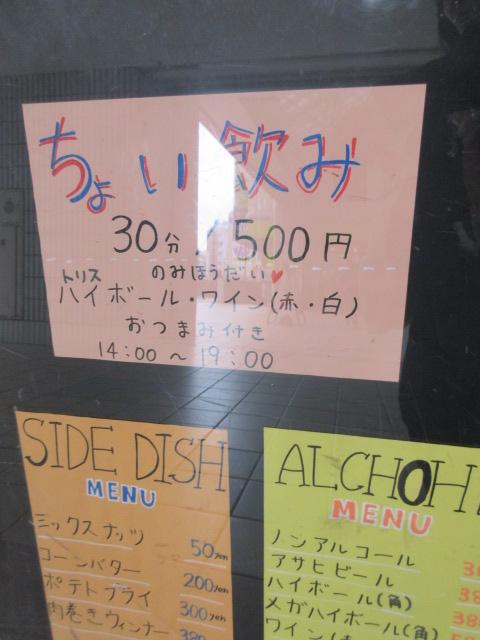 ちょい飲み
30分/500円
のみほうだい♥
トリス
ハイボール・ワイン(赤・白)
おつまみ付き
14:00～19:00
SIDE DISH
MENU
ミックスナッツ 50yen
コーンバター 200yen
ポテトフライ 300yen
肉巻きウィンナー 380
ALCHOH
MENU
ノンアルコール
アサヒビール
ハイボール(角)
メガハイボール(角)